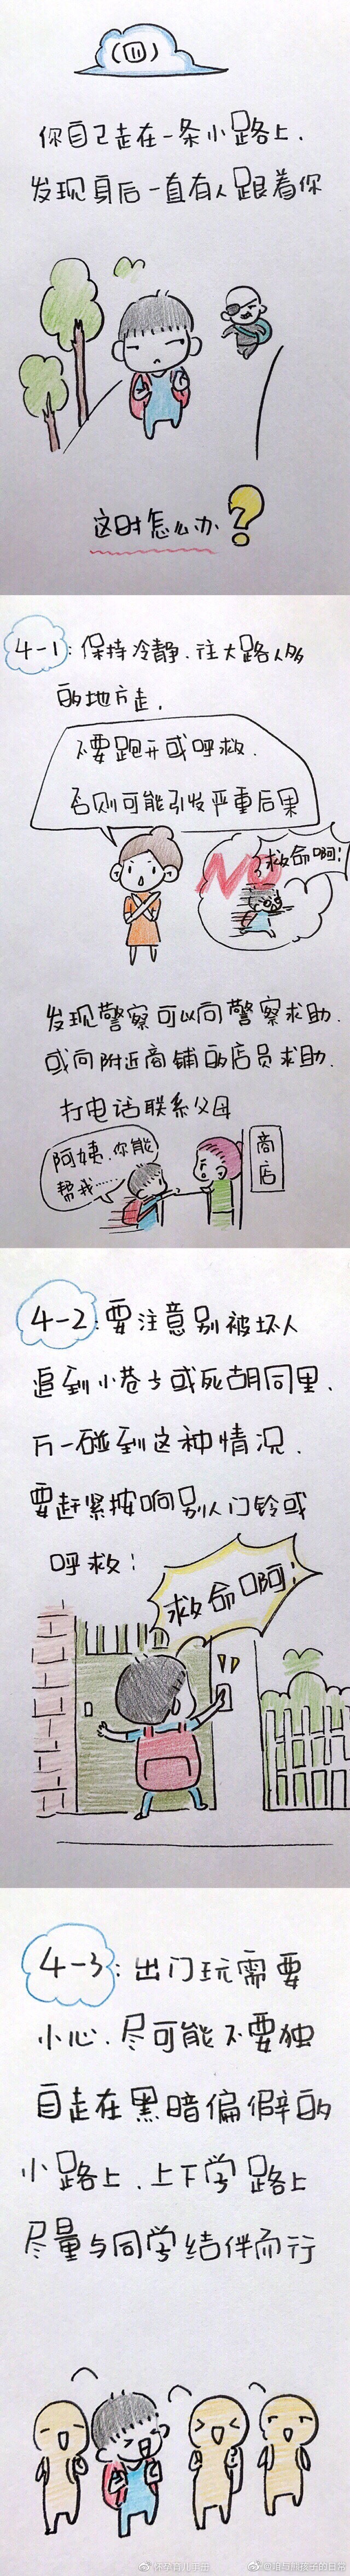 (四)
你自己走在一条小路上.
发现身后一直有人跟着你
这时怎么办?
4-1:保持冷静.往大路人多
的地方走.
不要跑开或呼救.
否则可能引发严重后果
NO
救命啊!
发现警察可以向警察求助.
或向附近商铺的店员求助.
打电话联系父母
阿姨.你能
帮我……
商店
4-2:要注意别被坏人
追到小巷子或死胡同里.
万一碰到这种情况.
要赶紧按响别人门铃或
呼救:
救命啊!
4-3:出门玩需要
小心.尽可能不要独
自走在黑暗偏僻的
小路上.上下学路上
尽量与同学结伴而行